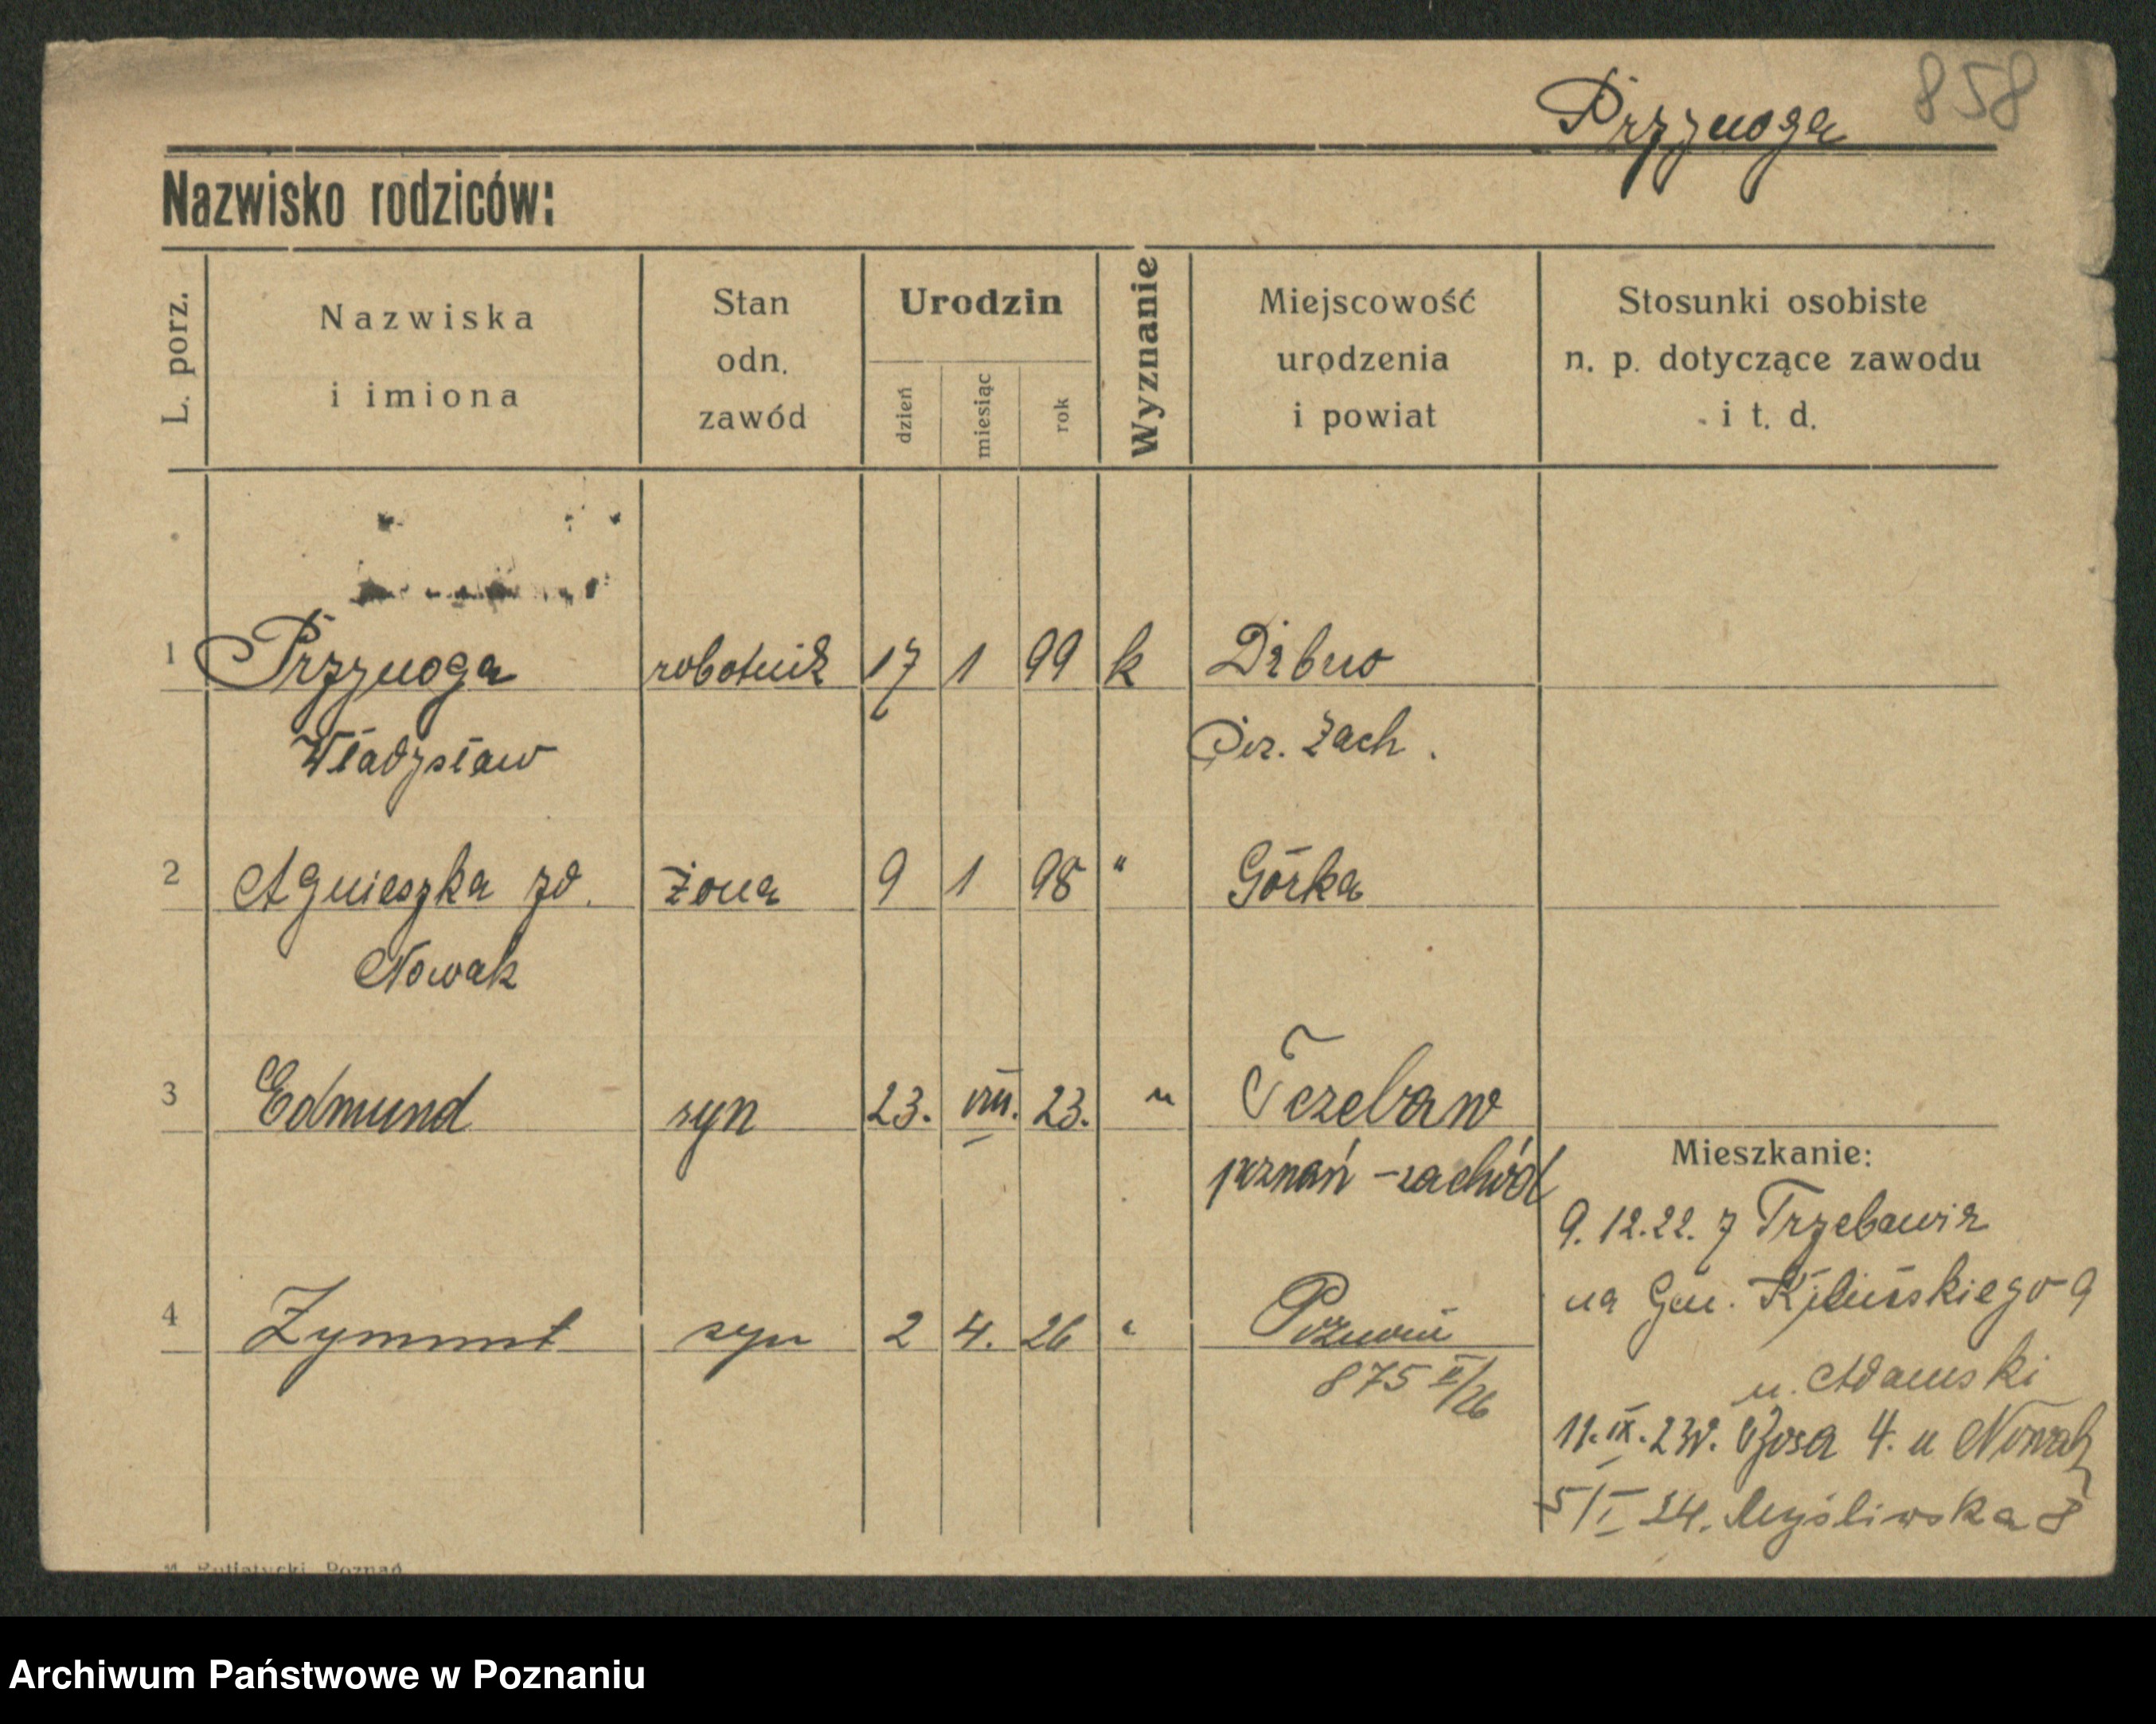 858
Przynoga
Nazwisko rodziców:
L. porz.
Nazwiska
i imiona
Stan
odn.
zawód
Urodzin
dzień
miesiąc
rok
Wyznanie
Miejscowość
urodzenia
i powiat
Stosunki osobiste
n. p. dotyczące zawodu
i t. d.
1 Przynoga robotnik 17 1 99 k
Władysław Zach.
2 Agnieszka zd. żona 9 1 98 " Górka
Nowak
3 Edmund syn 23. VIII. 23. " Tczebaw
poznań - zachód
4 Zymunt syn 2 4. 26 " Poznań
875 II/26
Mieszkanie:
9.12.22. z Trzebawia
na Gen. Kilińskiego 9
u. Adamski
11. IX. 23r. 4. u Nowak
5/I 24. Myśliwska 8
Poznań
Archiwum Państwowe w Poznaniu